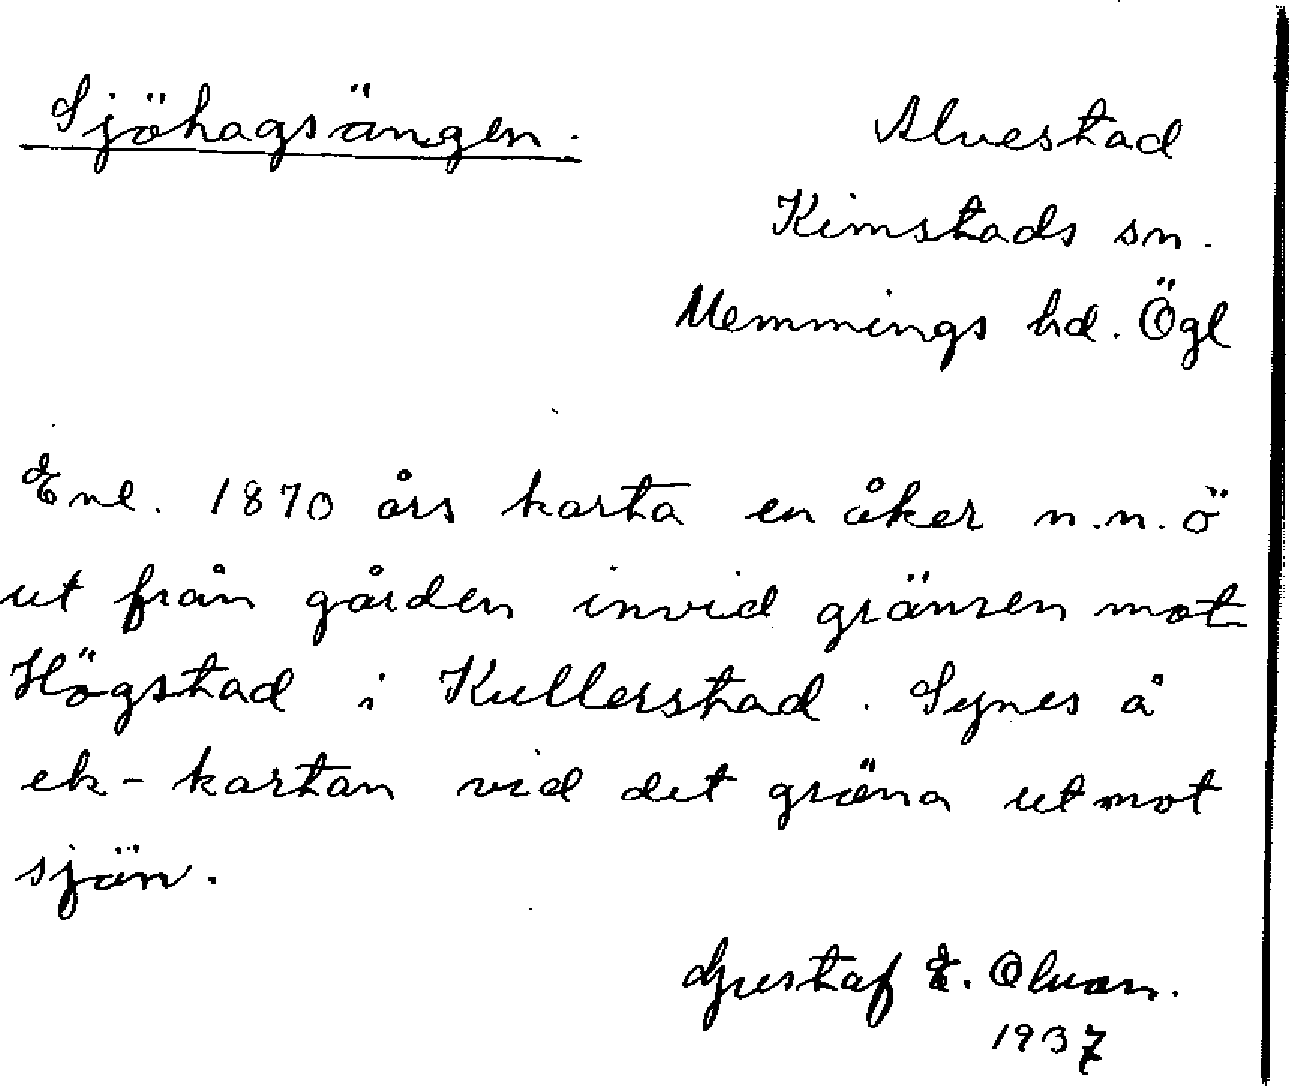 Sjöhagsängen.
Alvestad
Kimstads sn.
Memmings hd. Ögl
Enl. 1870 års karta en åker n.n.ö
ut från gården invid gränsen mot
Högstad i Kullerstad. Synes å
ek-kartan vid det gröna ut mot
sjön.
Gustaf E. Olvan.
1937